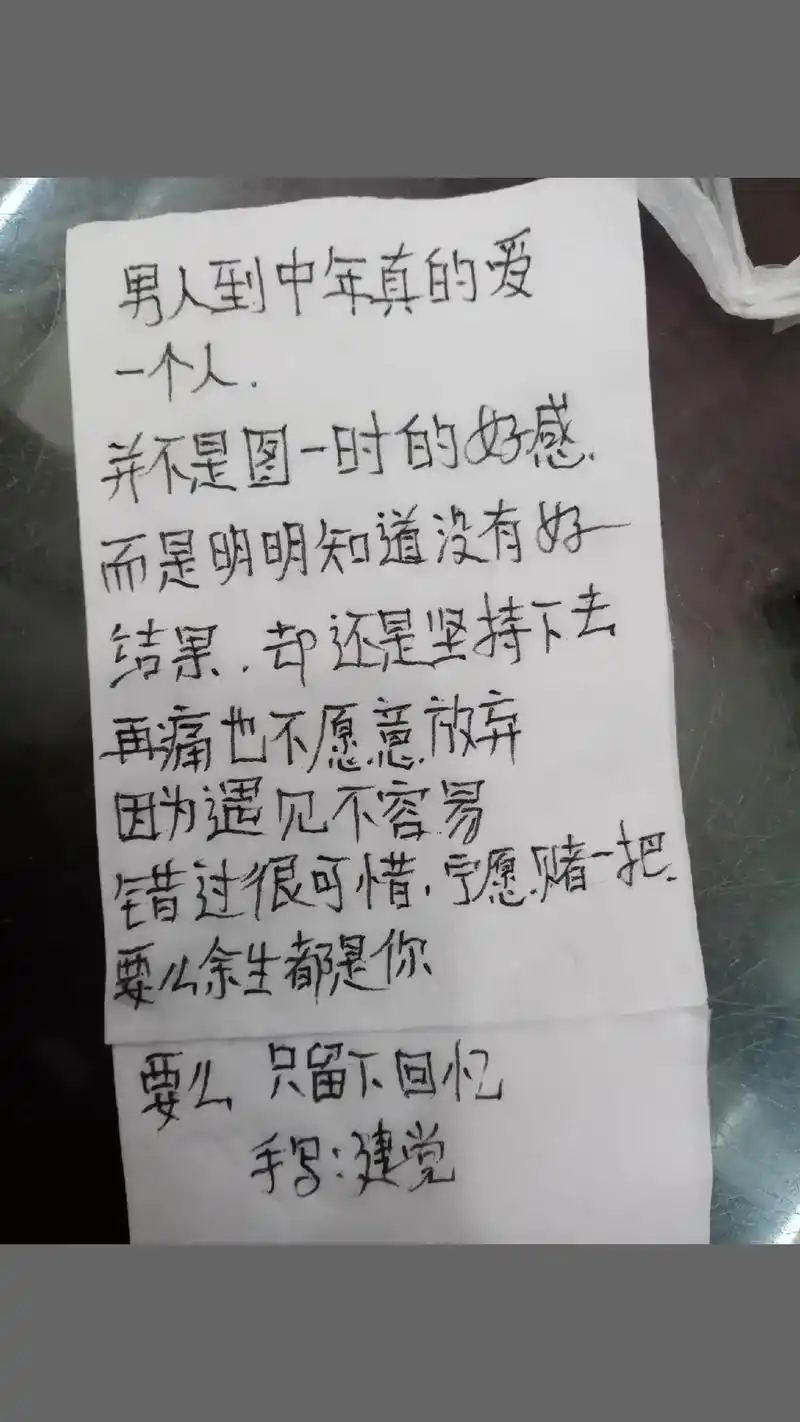 男人到中年真的爱
一个人.
并不是图一时的好感.
而是明明知道没有好
结果.却还是坚持下去
再痛也不愿意放弃
因为遇见不容易
错过很可惜.宁愿赌一把.
要么余生都是你
要么 只留下回忆
手写:建党